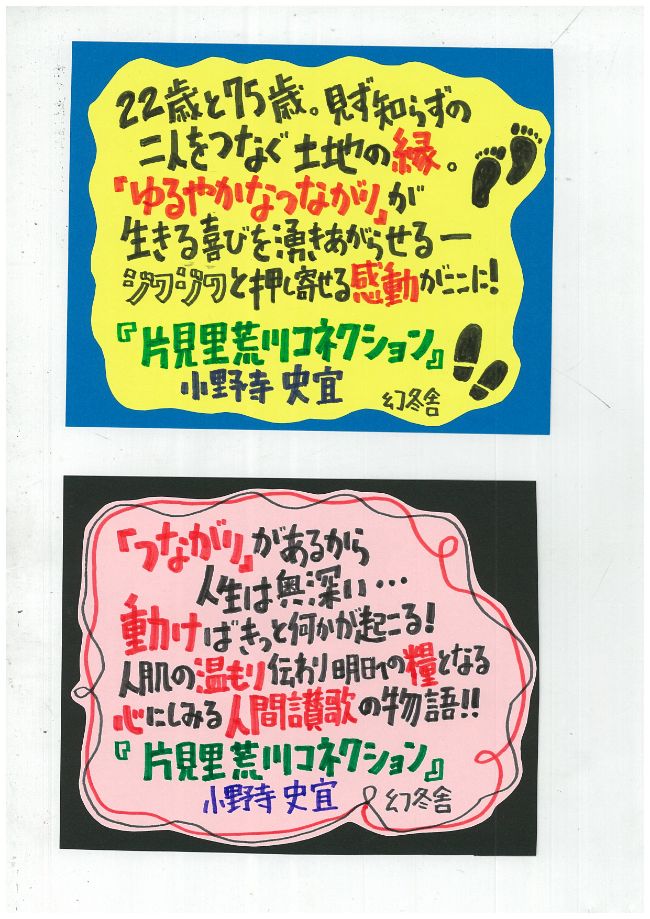 22歳と75歳。見ず知らずの
二人をつなぐ土地の縁。
「ゆるやかなつながり」が
生きる喜びを湧きあがらせる—
ジワジワと押し寄せる感動がここに!
『片見里荒川コネクション』
小野寺史宜 幻冬舎
「つながり」があるから
人生は奥深い…
動けばきっと何かが起こる!
人肌の温もり伝わり明日への糧となる
心にしみる人間讃歌の物語!!
『片見里荒川コネクション』
小野寺史宜 幻冬舎